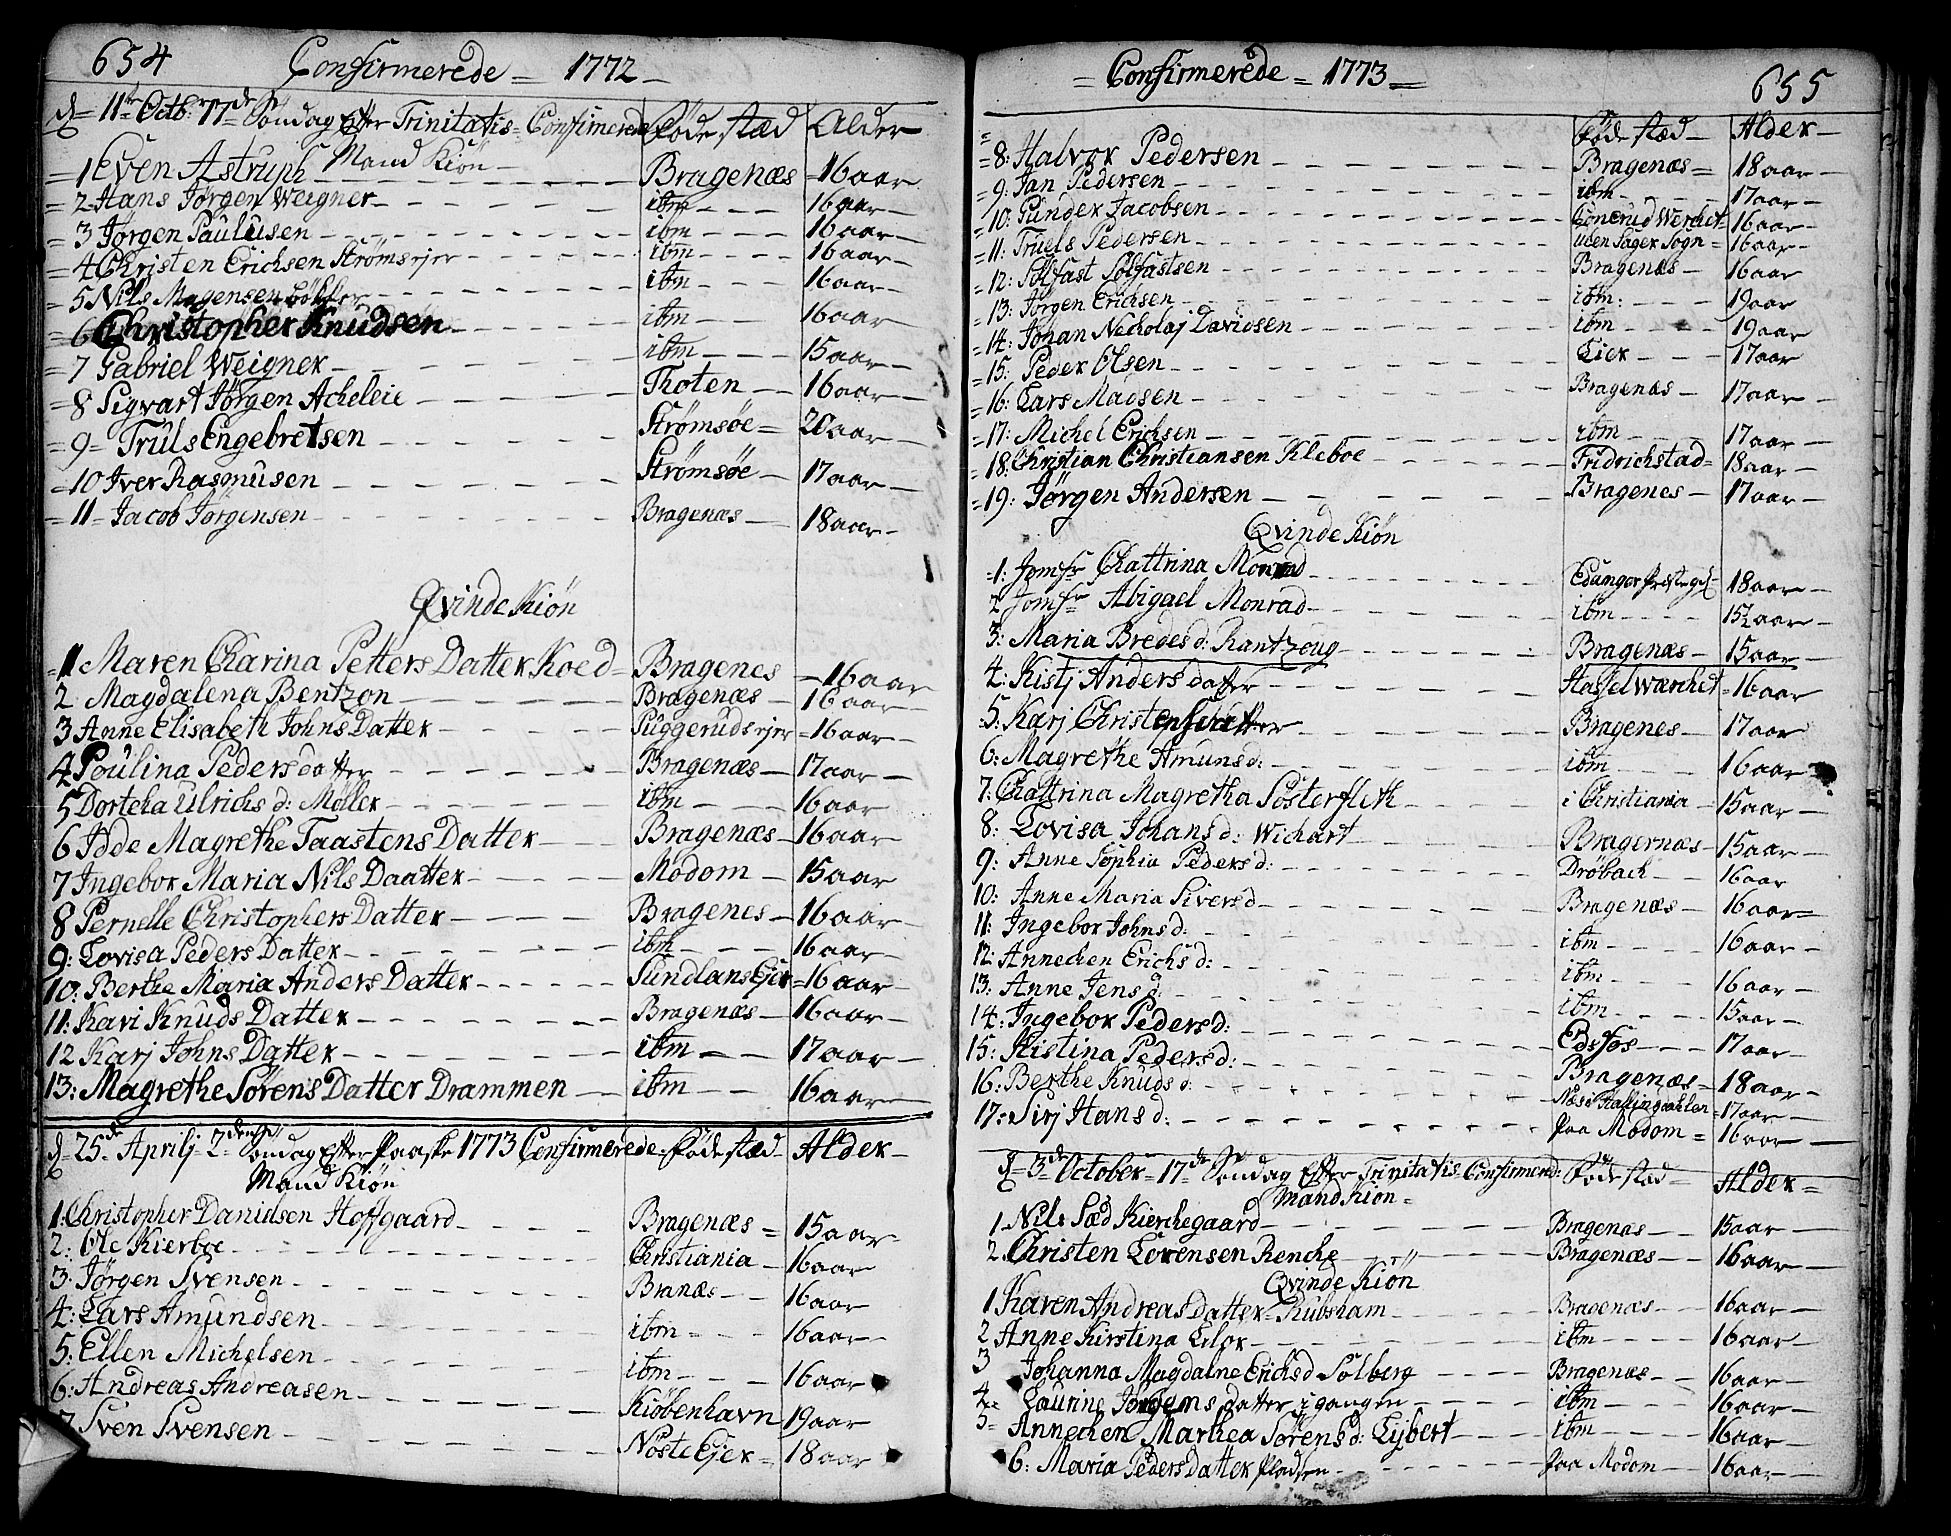 654 Confirmerede = 1772
d = 11te Octb: 17de Søndag Efter Trinitatis = Confirmerede Føde stæd Alder
Mand Kiön
1 Even Astruph Bragenæs 16 aar
2 Hans Jørgen Weigner ibm 16 aar
3 Jørgen Paulusen ibm 16 aar
4 Christen Erichsen Strømsejer ibm 16 aar
5 Nils Mogensen Bøhler ibm 16 aar
6 Christopher Knudsen ibm 16 aar
7 Gabriel Weigner ibm 15 aar
8 Sigvart Jørgen Acheleie Thoten 16 aar
9 Truls Engebretsen Strømsøe 20 aar
10 Iver Rasmusen Strømsøe 17 aar
11 Jacob Jørgensen Bragenæs 18 aar
Qvinde Kiön
1 Maren Charina Petters Datter Koed Bragenes 16 aar
2 Magdalena Bentzon Bragenæs 16 aar
3 Anne Elisabeth Johns Datter Puggerudsejer 16 aar
4 Poulina Peders datter Bragenæs 17 aar
5 Dorteha Ulrichs d: Møller ibm 16 aar
6 Idde Magrethe Taastens Datter Bragenæs 16 aar
7 Ingebor Maria Nils Daatter Modom 15 aar
8 Pernelle Christophers Datter Bragenes 16 aar
9: Lovisa Peders Datter ibm 16 aar
10: Berthe Maria Anders Datter Sundlans Ejer 16 aar
11: Kari Knuds Datter Bragenæs 16 aar
12 Karj Johns Datter ibm 17 aar
13: Magrethe Sørens Datter Drammen ibm 16 aar
d = 25de Aprilj 2den Søndag Efter Paaske 1773 Confirmerede: Føde stæd Alder
Mand Kiön
1: Christopher Danielsen Hoffgaard Bragenæs 15 aar
2: Ole Kierboe Christiania 16 aar
3: Jørgen Svensen Branæs 16 aar
4: Lars Amundsen ibm 16 aar
5: Ellen Michelsen ibm 16 aar
6: Andreas Andreasen Kiøbenhavn 19 aar
7 Sven Svensen Nøste Ejer 18 aar
= Confirmerede = 1773 = 655
Føde stæd Alder
8: Halvor Pedersen Bragenæs 18 aar
9: Jan Pedersen ibm 17 aar
10: Gunder Jacobsen Conerud Werchet 16 aar
11: Truels Pedersen uden Sager Sogn 16 aar
12: Solfast Solfastsen Bragenæs 16 aar
13: Jørgen Erichsen ibm: 19 aar
14: Johan Nicholaj Davidsen ibm 19 aar
15: Peder Olsen Lier 17 aar
16: Lars Madsen Bragenæs 17 aar
17: Michel Erichsen ibm 17 aar
18: Christian Christiansen Kleboe Fridrichstad 18 aar
19: Jørgen Andersen Bragenes 17 aar
Qvinde Kiön
1: Jomfr Chattrina Monrad Edanger Præstegd 18 aar
2 Jomfr Abigael Monrad ibm 15½ aar
3: Maria Bredes d: Rantzoug Bragenæs 15 aar
4: Kistj Anders datter Hassel Wærchet 16 aar
5: Karj Christens datter Bragenes 17 aar
6: Magrethe Amuns d: ibm 16 aar
7: Chattrina Magretha Sosterfleth i Christiania 15 aar
8: Lovisa Johans d: Wichart Bragernæs 15 aar
9: Anne Sophia Peders d: Drøbach 16 aar
10: Anne Maria Sivers d Bragenæs 16 aar
11: Ingebor Johns d: ibm 16 aar
12: Annechen Erichs d: ibm 16 aar
13: Anne Jens d: ibm 15 aar
14: Ingebor Peders d: Edsfos 17 aar
15: Kistina Peders d: Bragenæs 18 aar
16: Berthe Knuds d: Næs i Hallingdahlen 17 aar
17: Sirj Hans d: paa Modom 16 aar
d = 3de October = 17de Søndag Efter Trinitatis Confirmered: Føde stæd Alder
Mand Kiön
1 Nils Sæd Kierchegaard Bragenæs 15 aar
2 Christen Lorensen Renche Bragenæs 16 aar
Qvinde Kiön
1 Karen Andreas Datter Rubsham Bragenæs 16 aar
2 Anne Kirstina Lilor ibm 16 aar
3 Johanna Magdalne Erichsd Solberg Bragenæs 16 aar
4 Laurine Jørgens datter i gangen ibm 16 aar
5 Annechen Marthea Sørens d: Lybert ibm 16 aar
6: Maria Peders Datter Pladsen paa Modom 16 aar